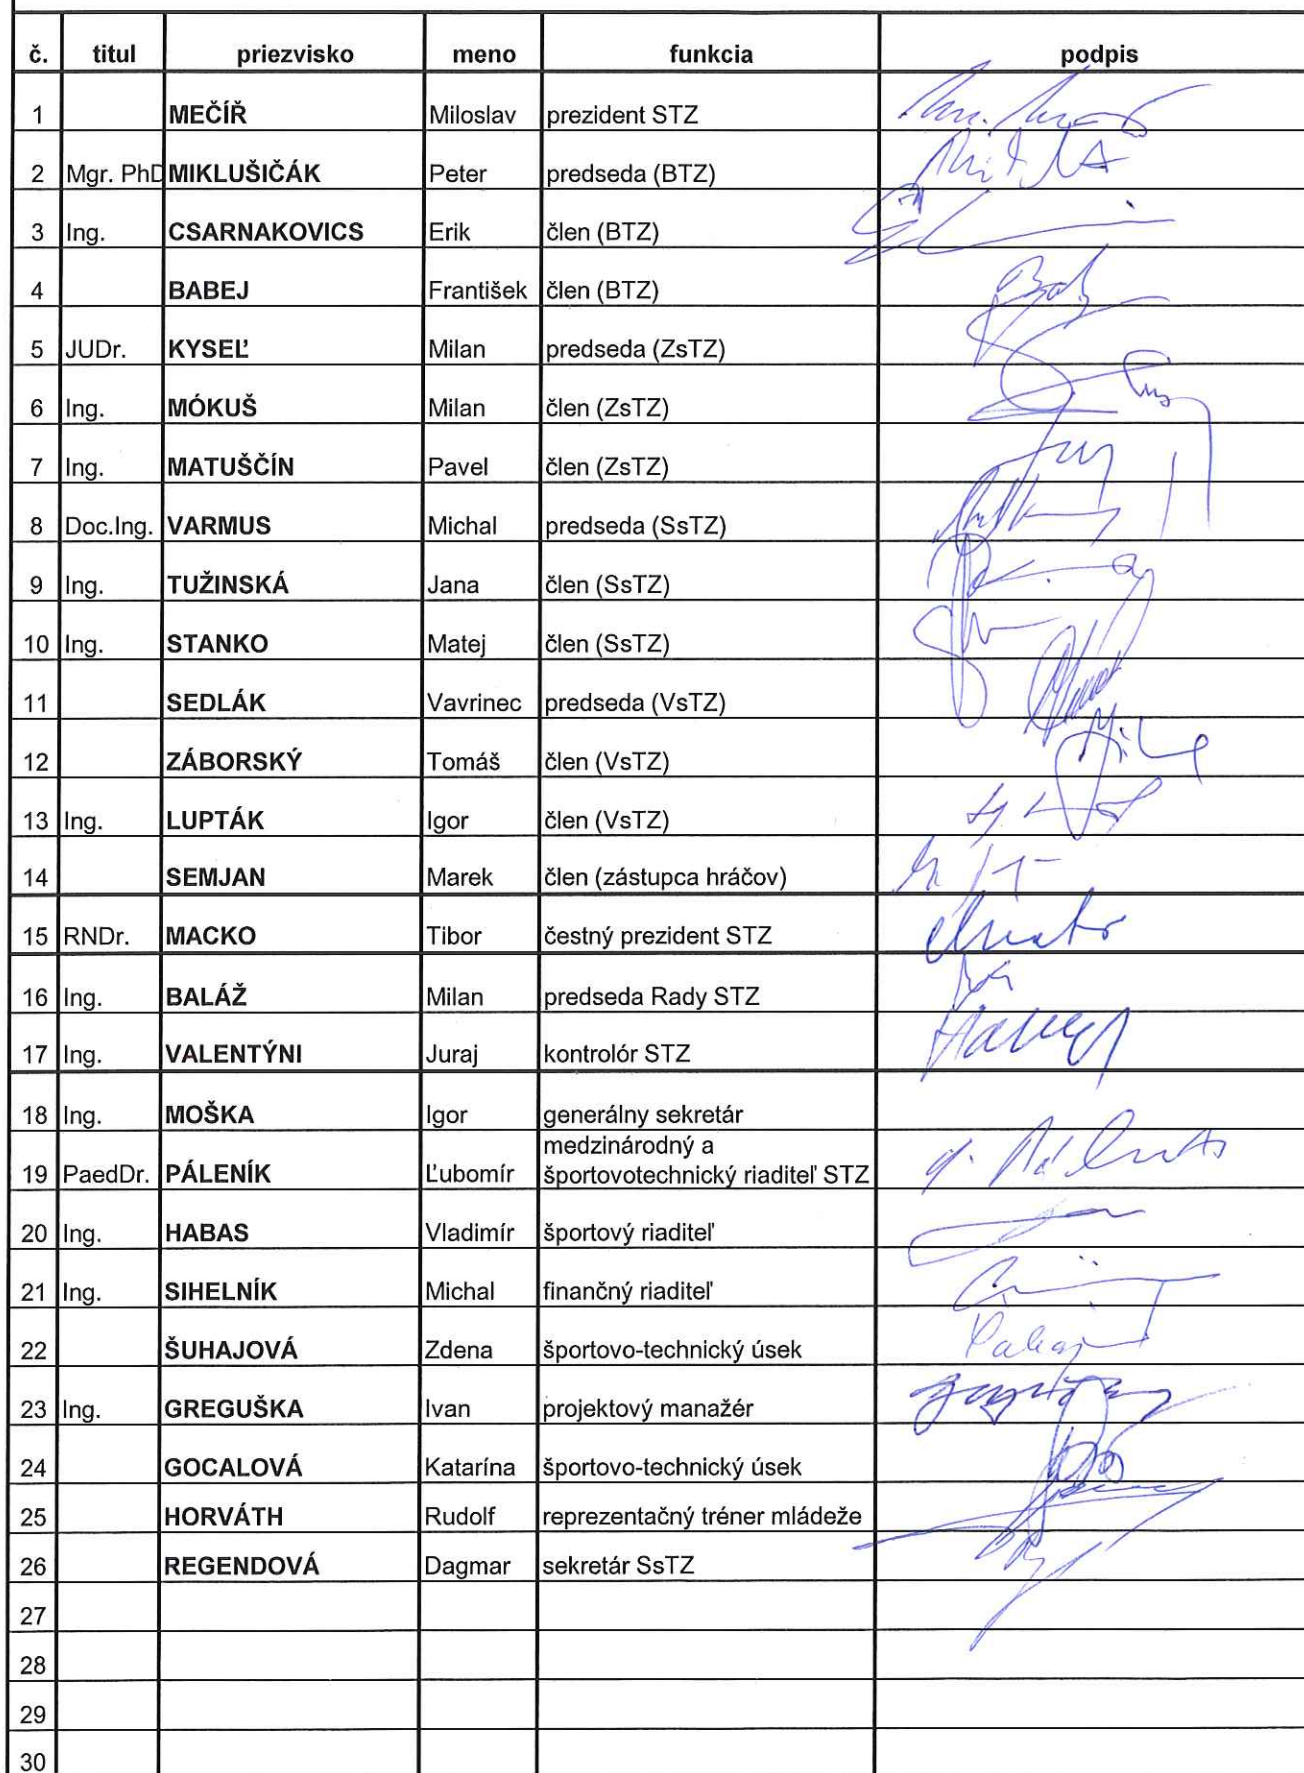 č. titul priezvisko meno funkcia podpis
1 MEČÍŘ Miloslav prezident STZ
2 Mgr. PhD MIKLUŠIČÁK Peter predseda (BTZ)
3 Ing. CSARNAKOVICS Erik člen (BTZ)
4 BABEJ František člen (BTZ)
5 JUDr. KYSEĽ Milan predseda (ZsTZ)
6 Ing. MÓKUŠ Milan člen (ZsTZ)
7 Ing. MATUŠČÍN Pavel člen (ZsTZ)
8 Doc.Ing. VARMUS Michal predseda (SsTZ)
9 Ing. TUŽINSKÁ Jana člen (SsTZ)
10 Ing. STANKO Matej člen (SsTZ)
11 SEDLÁK Vavrinec predseda (VsTZ)
12 ZÁBORSKÝ Tomáš člen (VsTZ)
13 Ing. LUPTÁK Igor člen (VsTZ)
14 SEMJAN Marek člen (zástupca hráčov)
15 RNDr. MACKO Tibor čestný prezident STZ
16 Ing. BALÁŽ Milan predseda Rady STZ
17 Ing. VALENTÝNI Juraj kontrolór STZ
18 Ing. MOŠKA Igor generálny sekretár
medzinárodný a
19 PaedDr. PÁLENÍK Ľubomír športovotechnický riaditeľ STZ
20 Ing. HABAS Vladimír športový riaditeľ
21 Ing. SIHELNÍK Michal finančný riaditeľ
22 ŠUHAJOVÁ Zdena športovo-technický úsek
23 Ing. GREGUŠKA Ivan projektový manažér
24 GOCALOVÁ Katarína športovo-technický úsek
25 HORVÁTH Rudolf reprezentačný tréner mládeže
26 REGENDOVÁ Dagmar sekretár SsTZ
27
28
29
30